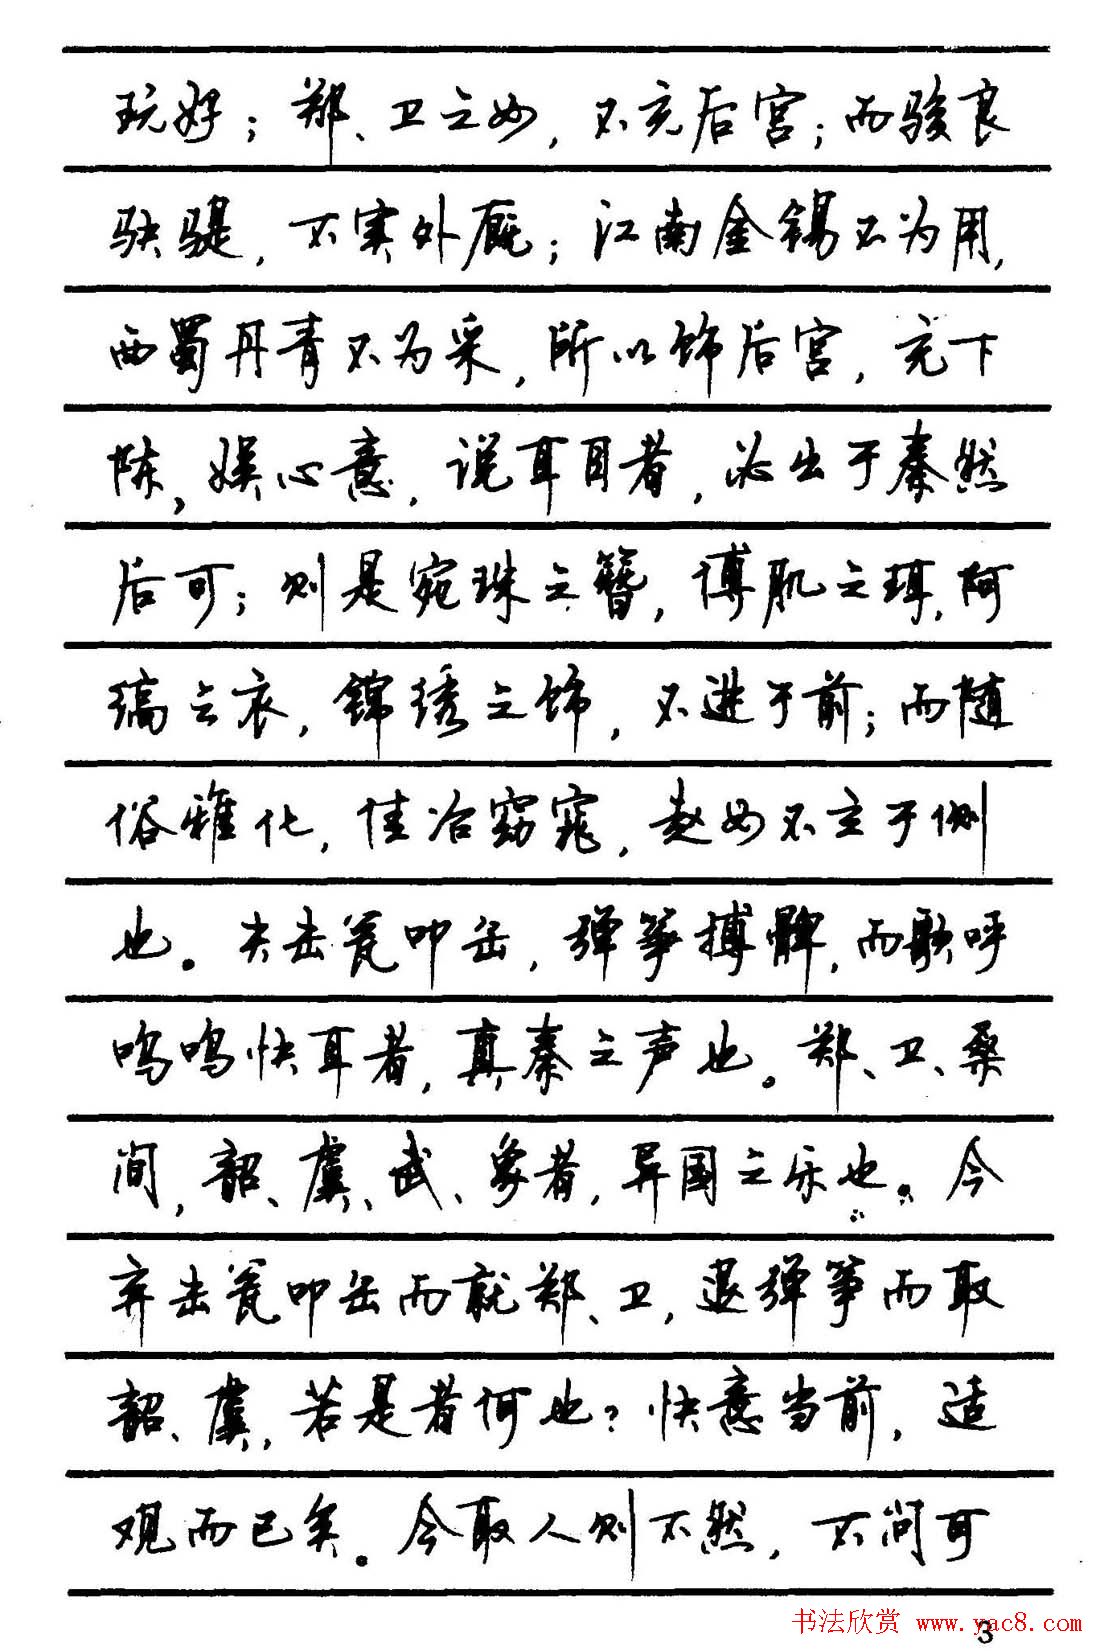 玩好；郑、卫之女，不充后宫；而骏良
駃騠，不实外厩；江南金锡不为用，
西蜀丹青不为采，所以饰后宫，充下
陈，娱心意，说耳目者，必出于秦然
后可；则是宛珠之簪，傅肌之珥，阿
缟之衣，锦绣之饰，不进于前；而随
俗雅化，佳冶窈窕，赵女不立于侧
也。夫击瓮叩缶，弹筝搏髀，而歌呼
呜呜快耳者，真秦之声也。郑、卫、桑
间，韶、虞、武、象者，异国之乐也。今
弃击瓮叩缶而就郑、卫，退弹筝而取
韶、虞，若是者何也？快意当前，适
观而已矣。今取人则不然，不问可
书法欣赏 www.yac8.com
3